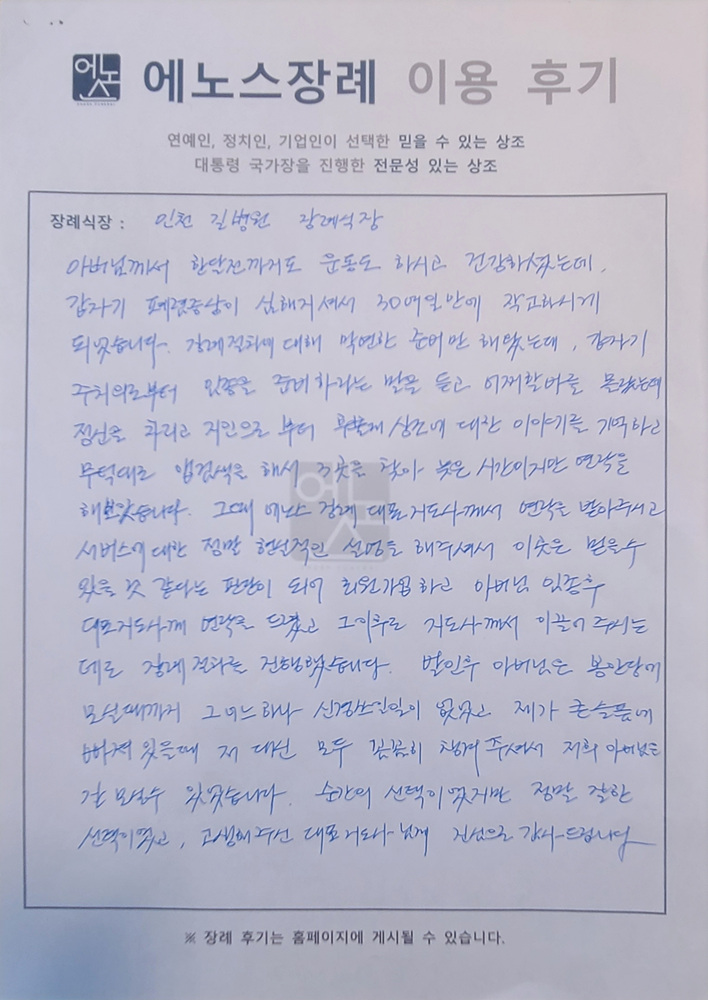 에노스
에노스장례 이용 후기
연예인, 정치인, 기업인이 선택한 믿을 수 있는 상조
대통령 국가장을 진행한 전문성 있는 상조
장례식장 : 인천 길병원 장례식장
아버님께서 한달전까지도 운동도 하시고 건강하셨는데,
갑자기 폐렴증상이 심해지셔서 30여일만에 작고하시게
되었습니다. 장례절차에 대해 막연한 준비만 해왔는데, 갑자기
주치의로부터 임종을 준비하라는 말을 듣고 어찌할바를 몰랐는데
정신을 차리고 지인으로 부터 후불제 상조에 대한 이야기를 기억하고
무턱대고 앱검색을 해서 3곳을 찾아 늦은 시간이지만 연락을
해보았습니다. 그때 에노스 장례 대표지도사께서 연락을 받아주시고
서비스에 대한 정말 헌신적인 설명을 해주셔서 이곳은 믿을수
있을 것 같다는 판단이 되어 회원가입하고 아버님 임종후
대표지도사께 연락을 드렸고 그이후로 지도사께서 이끌어 주시는
데로 장례절차를 진행했습니다. 발인후 아버님은 봉안당에
모실때까지 그 어느하나 신경쓰인일이 없었고 제가 큰슬픔에
빠져 있을때 저 대신 모두 꼼꼼히 챙겨 주셔서 저희 아버님을
잘 모실수 있었습니다. 순간의 선택이였지만 정말 잘한
선택이였고, 고생해주신 대표지도사님께 진심으로 감사드립니다
※ 장례 후기는 홈페이지에 게시될 수 있습니다.